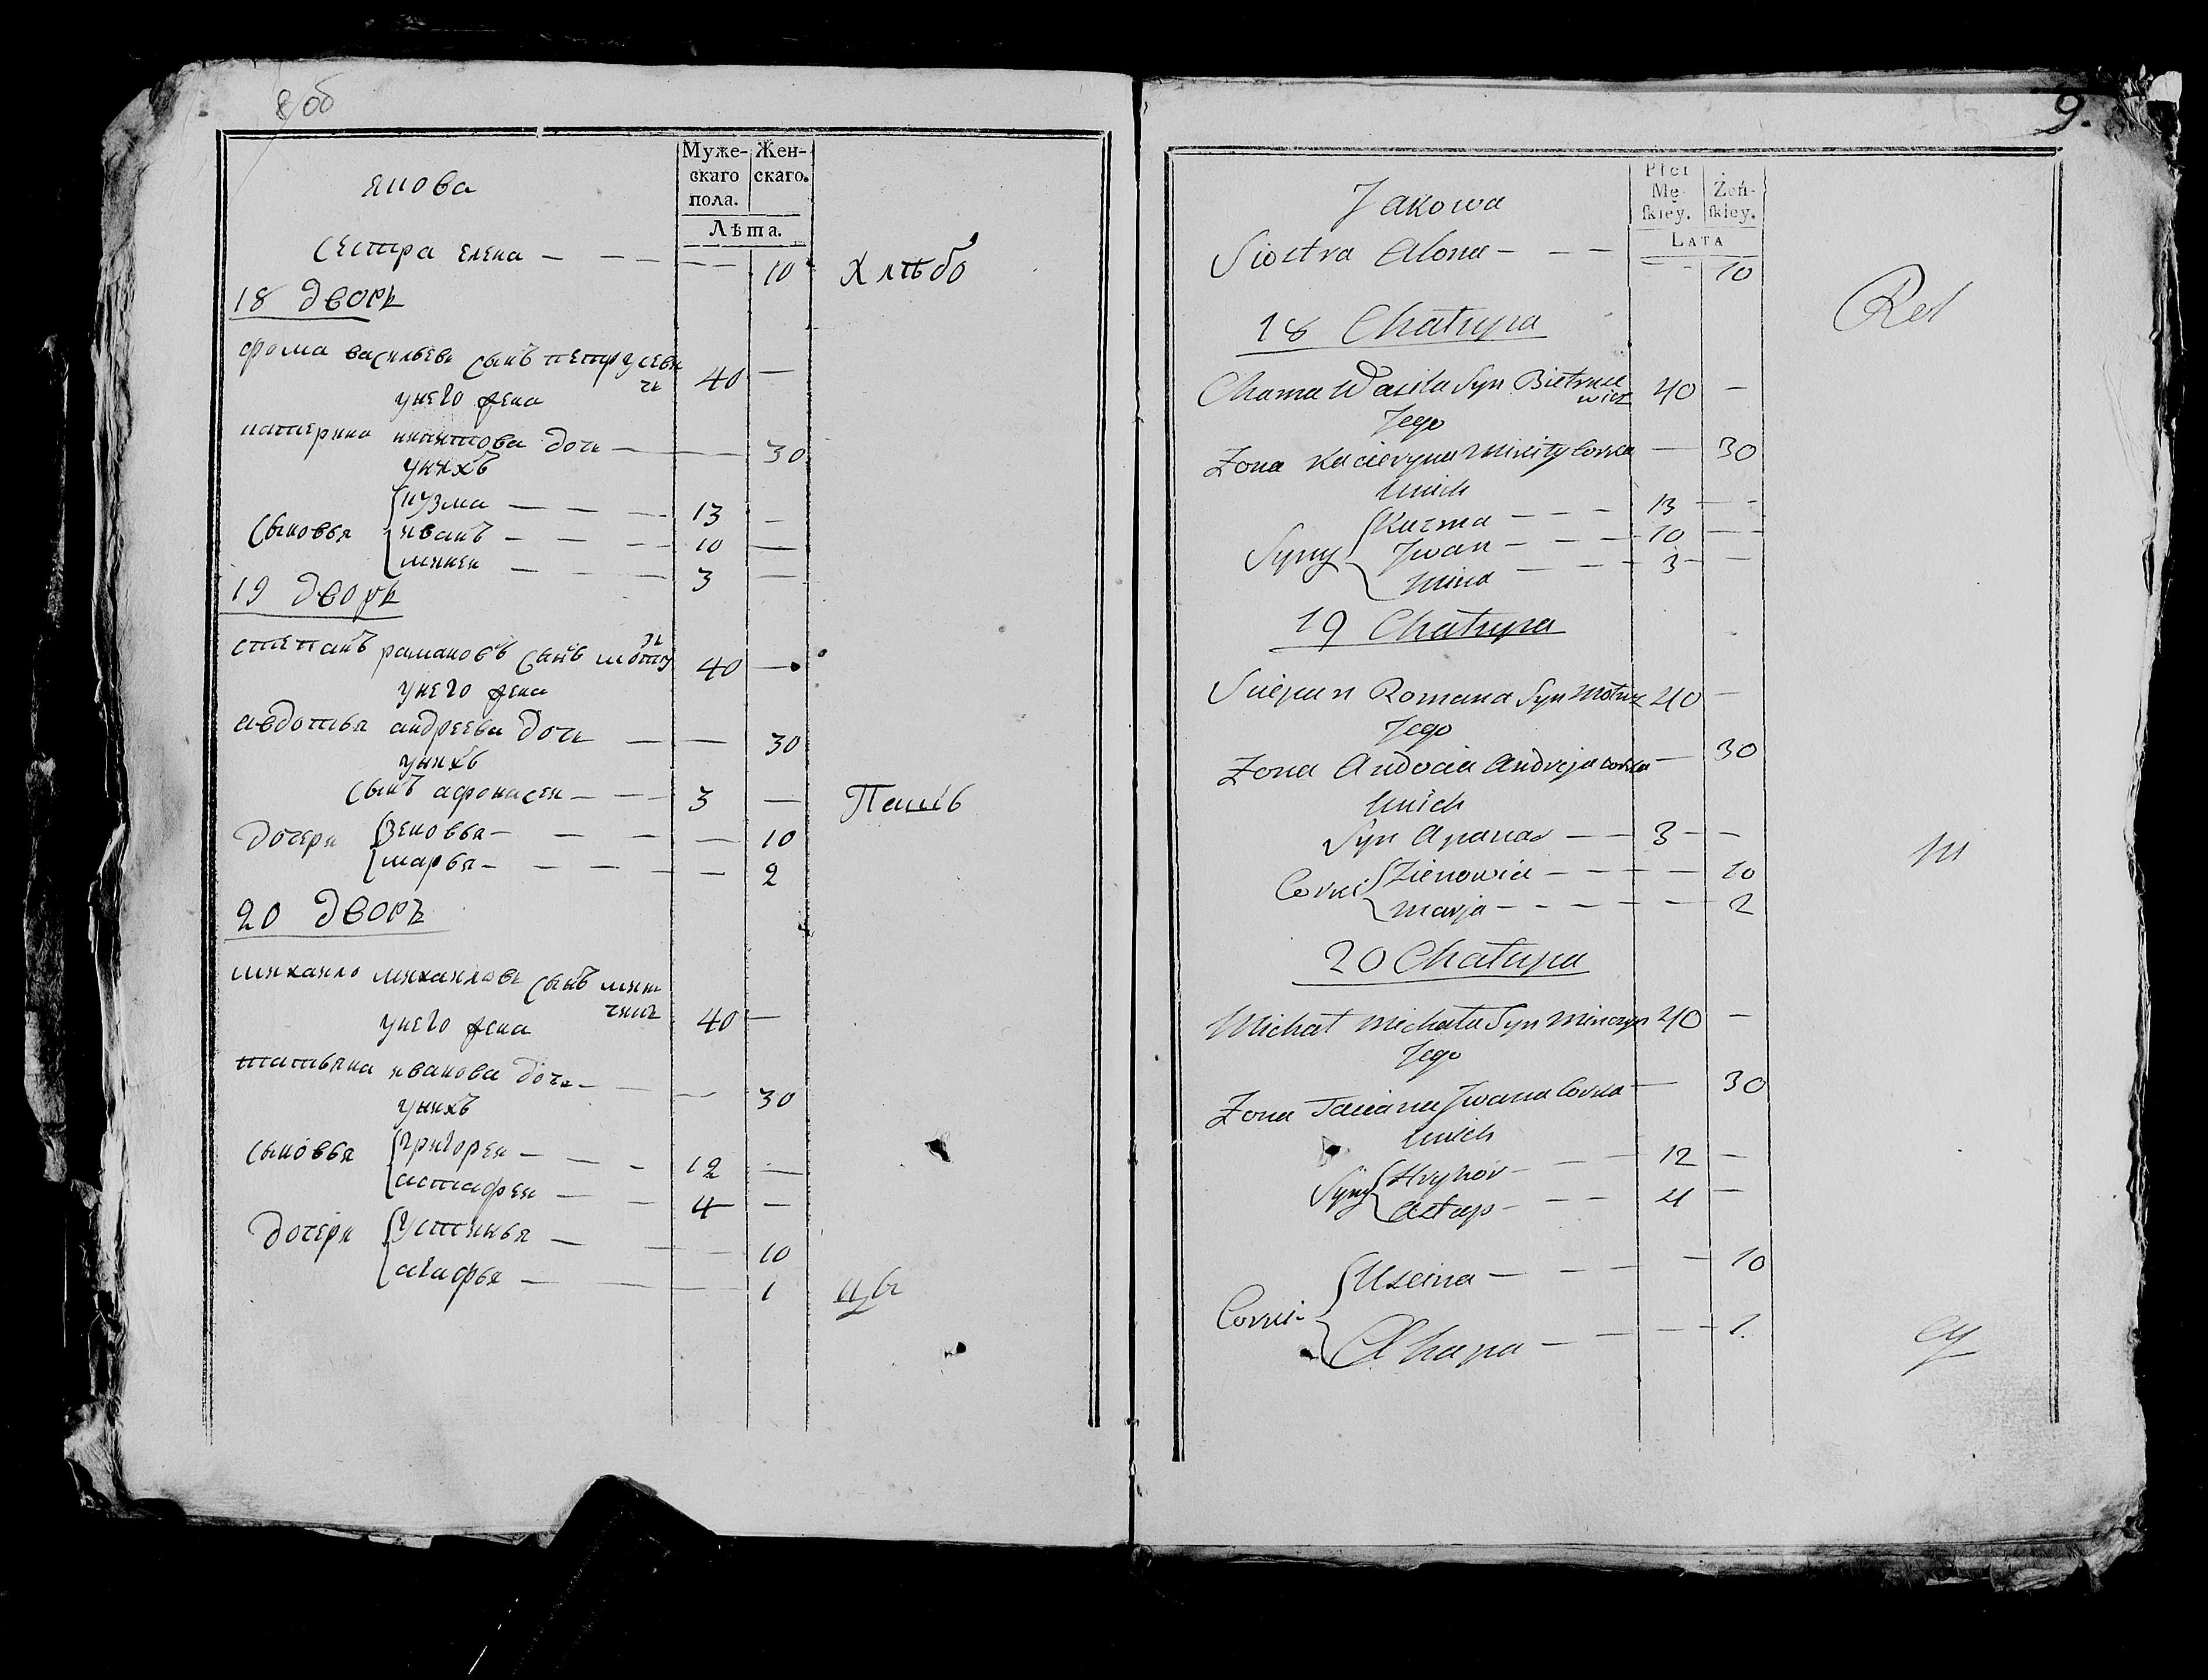 8 об
Муже- Жен-
скаго скаго.
пола.
Лѣта.
якова
сестра елена — — — — 10 Хлѣбо
18 дворъ
фома васильевъ сынъ петрусеви
чъ 40 —
у него жена
катерина никитова дочь — — 30
у нихъ
сыновья кузма — — — 13 —
иванъ — — — 10 —
миней — — — 3 —
19 дворъ
степанъ романовъ сынъ мотузъ 40 —
у него жена
авдотья андреева дочь — — 30
у нихъ
сынъ афонасеи — — 3 — Пашъ
дочери зеновья — — — — 10
марья — — — — — 2
20 дворъ
михаило михаиловъ сынъ мин
чичъ 40 —
у него жена
татьяна иванова дочь — — — 30
у нихъ
сыновья григореи — — — 12 —
астафеи — — 4 —
дочери устинья — — — 10
агафья — — — 1 цъ
9.
Płci
Mę- Żeń-
skiey. skiey.
LATA
Jakowa
Siostra Alona — — — — 10
Rol
18 Chatupa
Chama Wasila Syn Pietruse
wicz 40 —
Jego
Zona Kacieryna Mikity Corka — 30
Unich
Syny Kuzma — — — 13 — -
Jwan — — — 10 —
Mina — — — 3 — —
19 Chatupa
Sciepan Romana Syn Motuz 40 —
Jego
Zona Audocia Andreja Corka — 30
Unich
Syn Apanas — — 3 — —
ni
Corki Zienowia — — — — 10
Marja — — — — — — 2
20 Chatupa
Michał Michała Syn Minczyn 40 —
Jego
Zona Taciana Jwana Corka — 30
Unich
Syny Hryhor — — — 12 —
Astap — — — 4 —
Corki Uscina — — — — 10
Ahapa — — — — 1.
cy